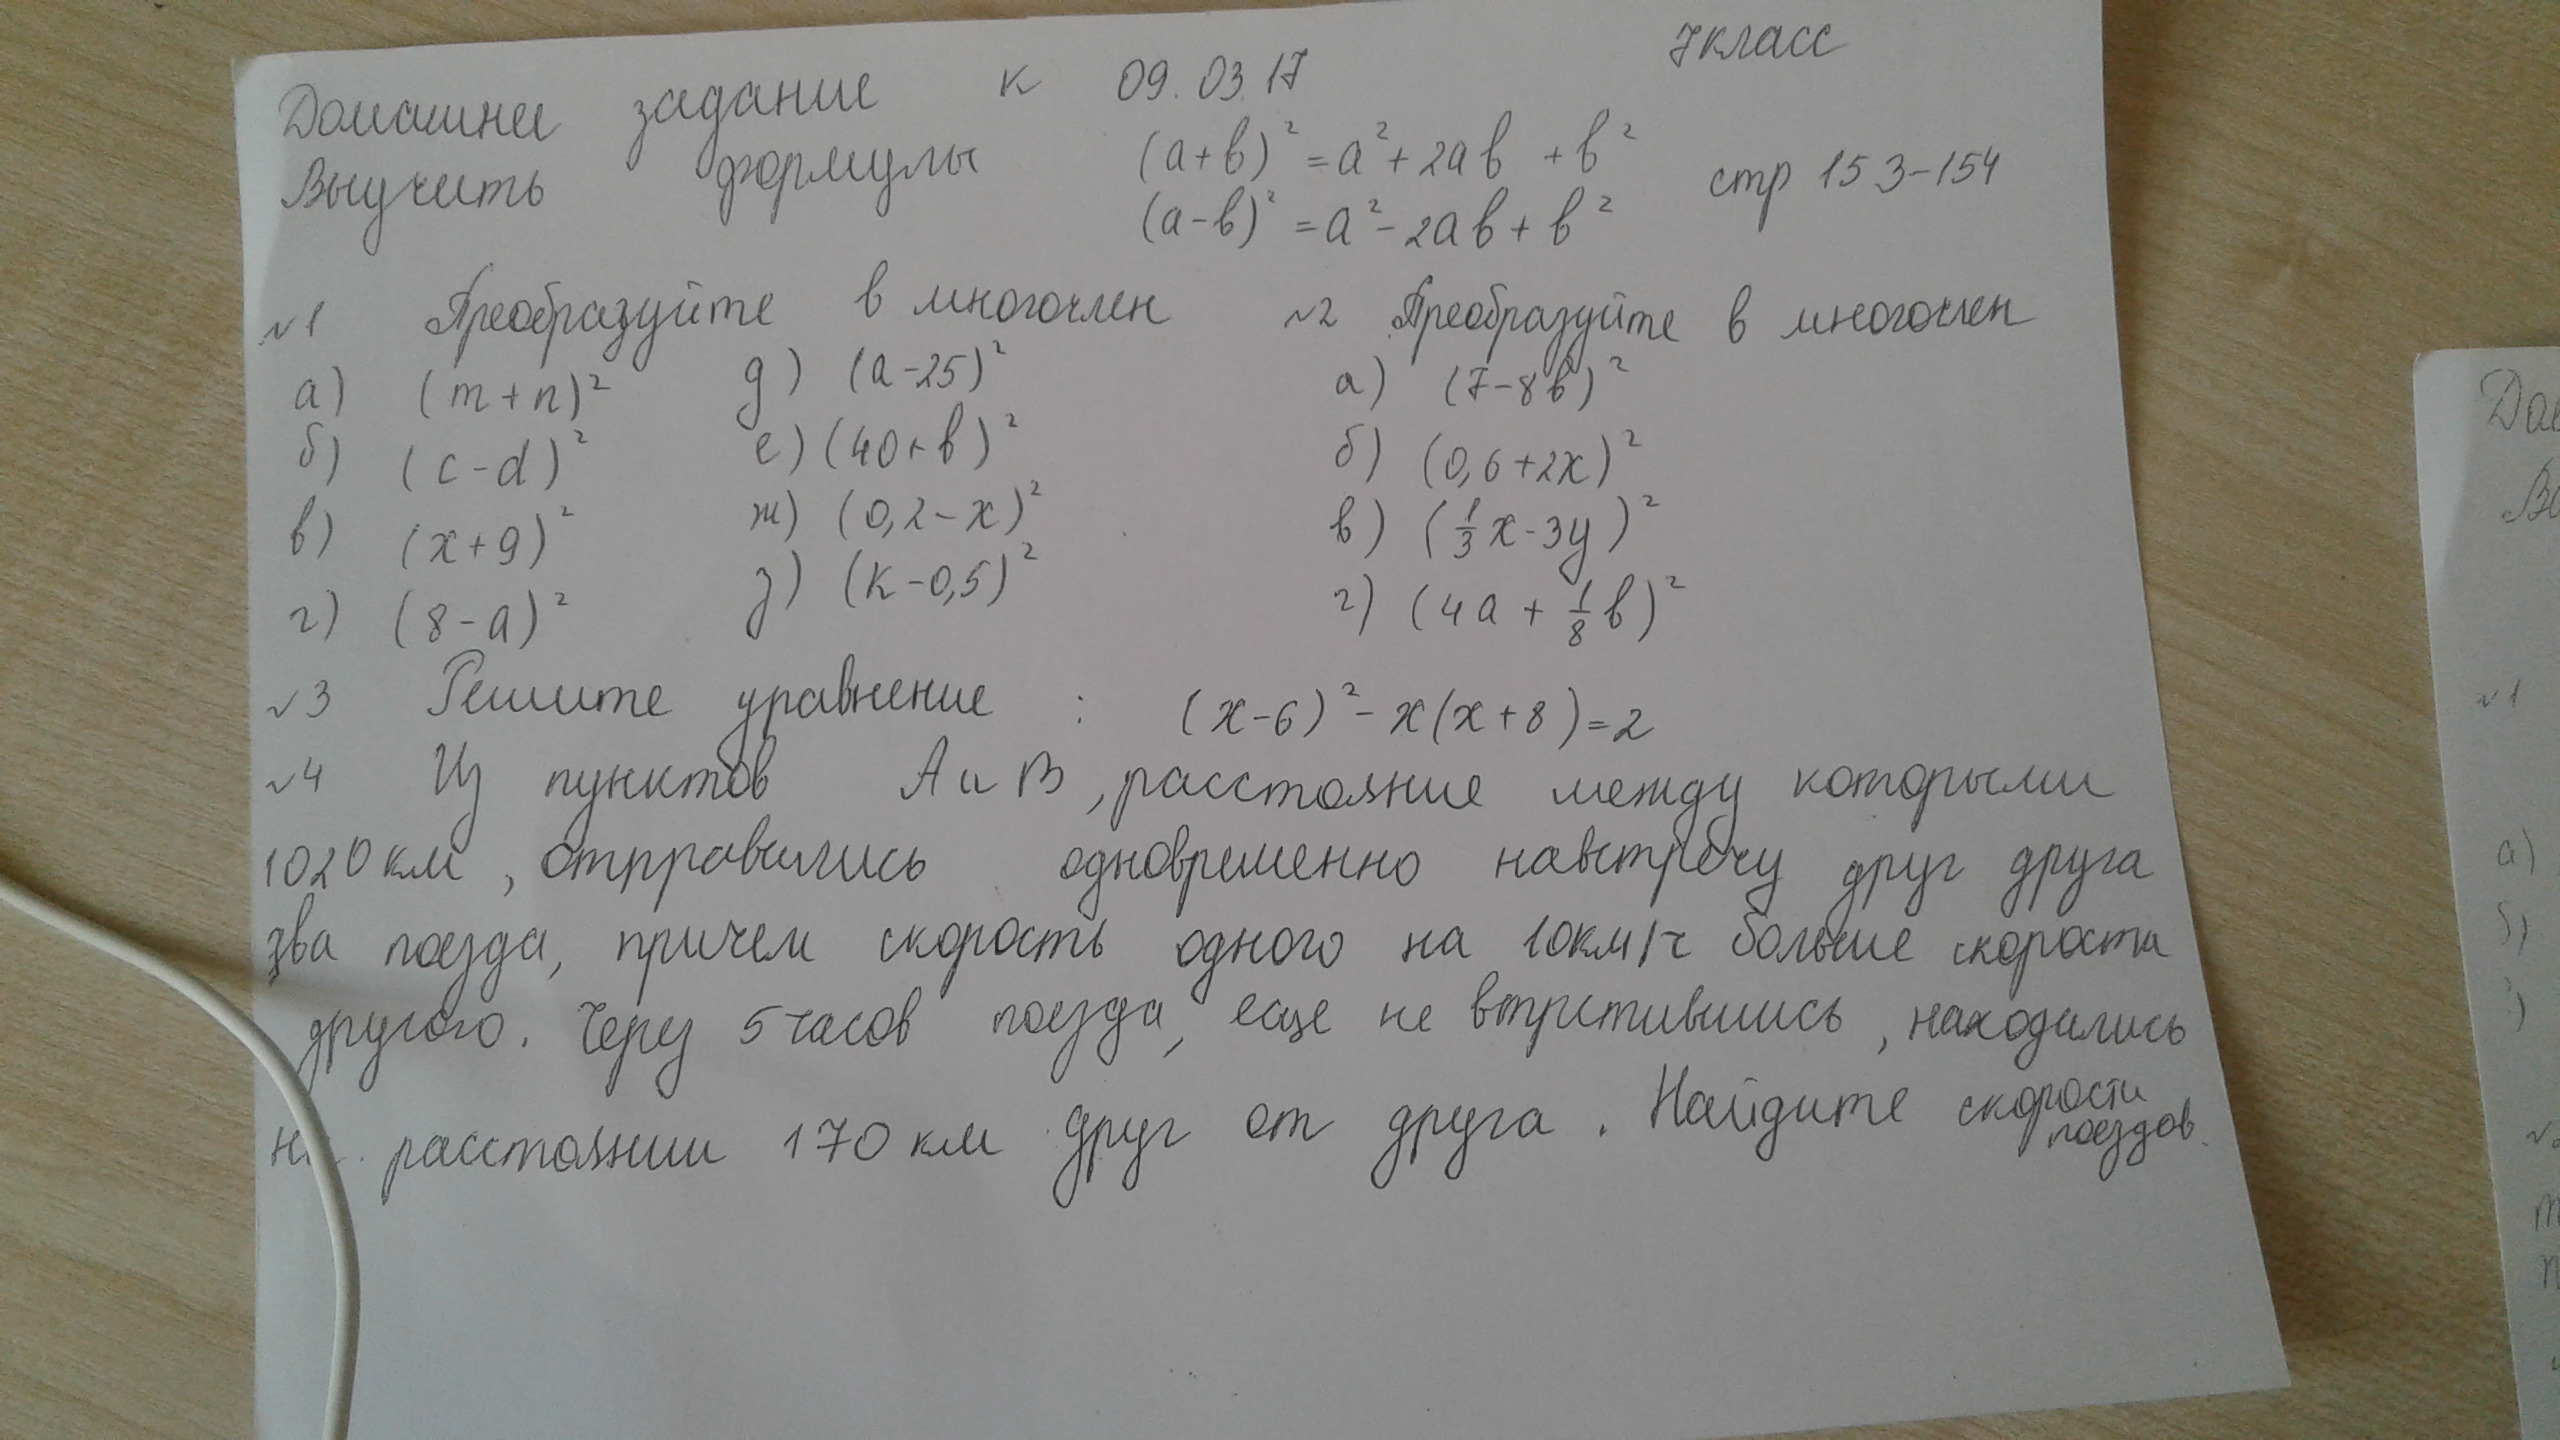 7 класс
Домашнее задание к 09.03.17
Выучить формулы (a+b)² = a² + 2ab + b² стр 153-154
(a-b)² = a² - 2ab + b²
№1 Преобразуйте в многочлен №2 Преобразуйте в многочлен
а) (m+n)² д) (a-25)² а) (7-8b)²
б) (c-d)² е) (40+b)² б) (0,6+2x)²
в) (x+9)² ж) (0,2-x)² в) (1/3x-3y)²
г) (8-a)² з) (k-0,5)² г) (4a+1/8b)²
№3 Решите уравнение : (x-6)² - x(x+8)=2
№4 Из пунктов А и В, расстояние между которыми
1020 км, отправились одновременно навстречу друг друга
два поезда, причем скорость одного на 10км/ч больше скорости
другого. Через 5 часов поезда, еще не встретившись, находились
на расстоянии 170 км друг от друга. Найдите скорости
поездов.
Вы
№1
а)
б)